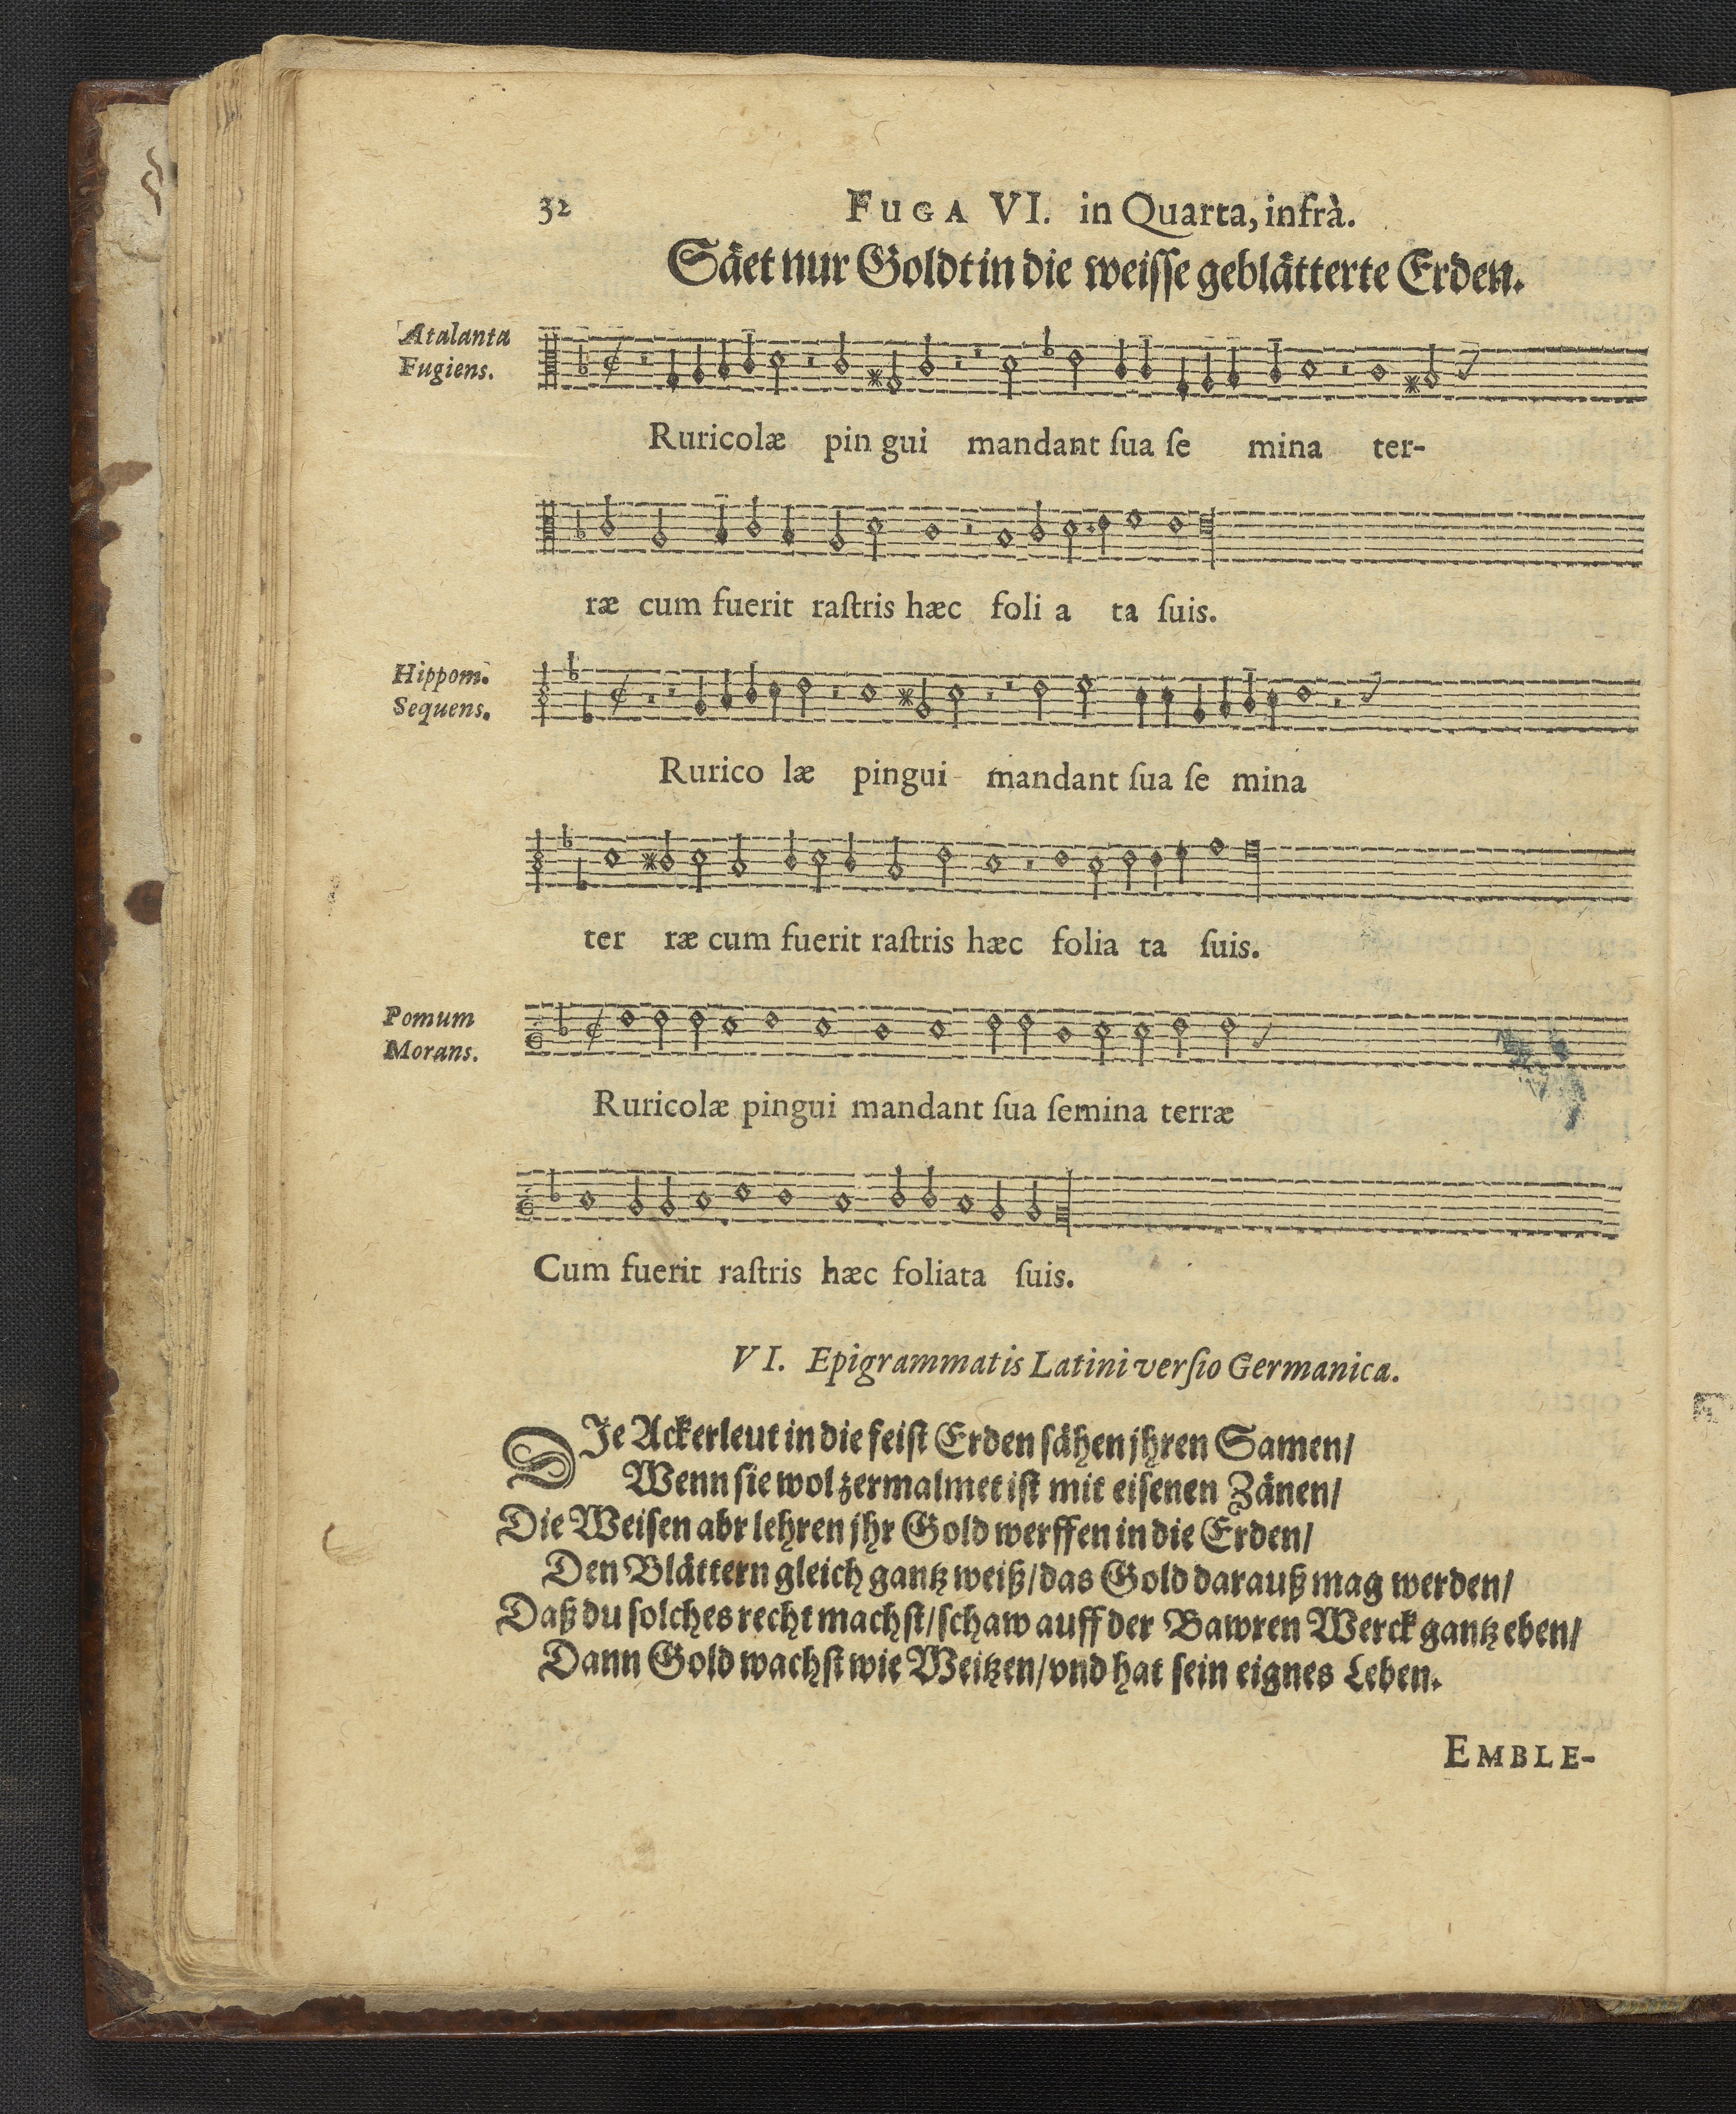 32 FUGA VI. in Quarta, infrà.
Säet nur Goldt in die weisse geblätterte Erden.
Atalanta
Fugiens.
Ruricolæ pin gui mandant ſua ſe mina ter-
ræ cum fuerit raſtris hæc foli a ta ſuis.
Hippom.
Sequens.
Rurico læ pingui mandant ſua ſe mina
ter ræ cum fuerit raſtris hæc folia ta ſuis.
Pomum
Morans.
Ruricolæ pingui mandant ſua ſemina terræ
Cum fuerit raſtris hæc foliata ſuis.
VI. Epigrammatis Latini verſio Germanica.
DIe Ackerleut in die feiſt Erden ſähen jhren Samen/
Wenn ſie wol zermalmet iſt mit eiſenen Zänen/
Die Weiſen abr lehren jhr Gold werffen in die Erden/
Den Blättern gleich gantz weiß/das Gold darauß mag werden/
Daß du ſolches recht machſt/ſchaw auff der Bawren Werck gantz eben/
Dann Gold wachſt wie Weitzen/vnd hat ſein eignes Leben.
EMBLE-